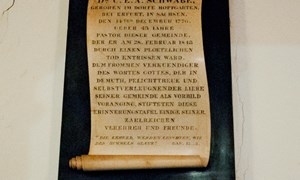 Dr C. E. A. SCHWABE,
GEBOREN IM DORFE HOPFGARTEN,
BEI ERFURT, IN SACHSEN,
DEN 14TEN DECEMBER 1776.
UEBER 43 JAHRE
PASTOR DIESER GEMEINDE,
DER ER AM 28. FEBRUAR 1843
DURCH EINEN PLOETZLICHEN
TOD ENTRISSEN WARD.
DEM FROMMEN VERKUENDIGER
DES WORTES GOTTES, DER IN
DEMUTH, PFLICHTTREUE UND
SELBSTVERLEUGNENDER LIEBE
SEINER GEMEINDE ALS VORBILD
VORANGING, STIFTETEN DIESE
ERINNERUNGSTAFEL EINIGE SEINER
ZAHLREICHEN
VEREHRER UND FREUNDE.
"DIE LEHRER, WERDEN LEUCHTEN, WIE
DES HIMMELS GLANZ."